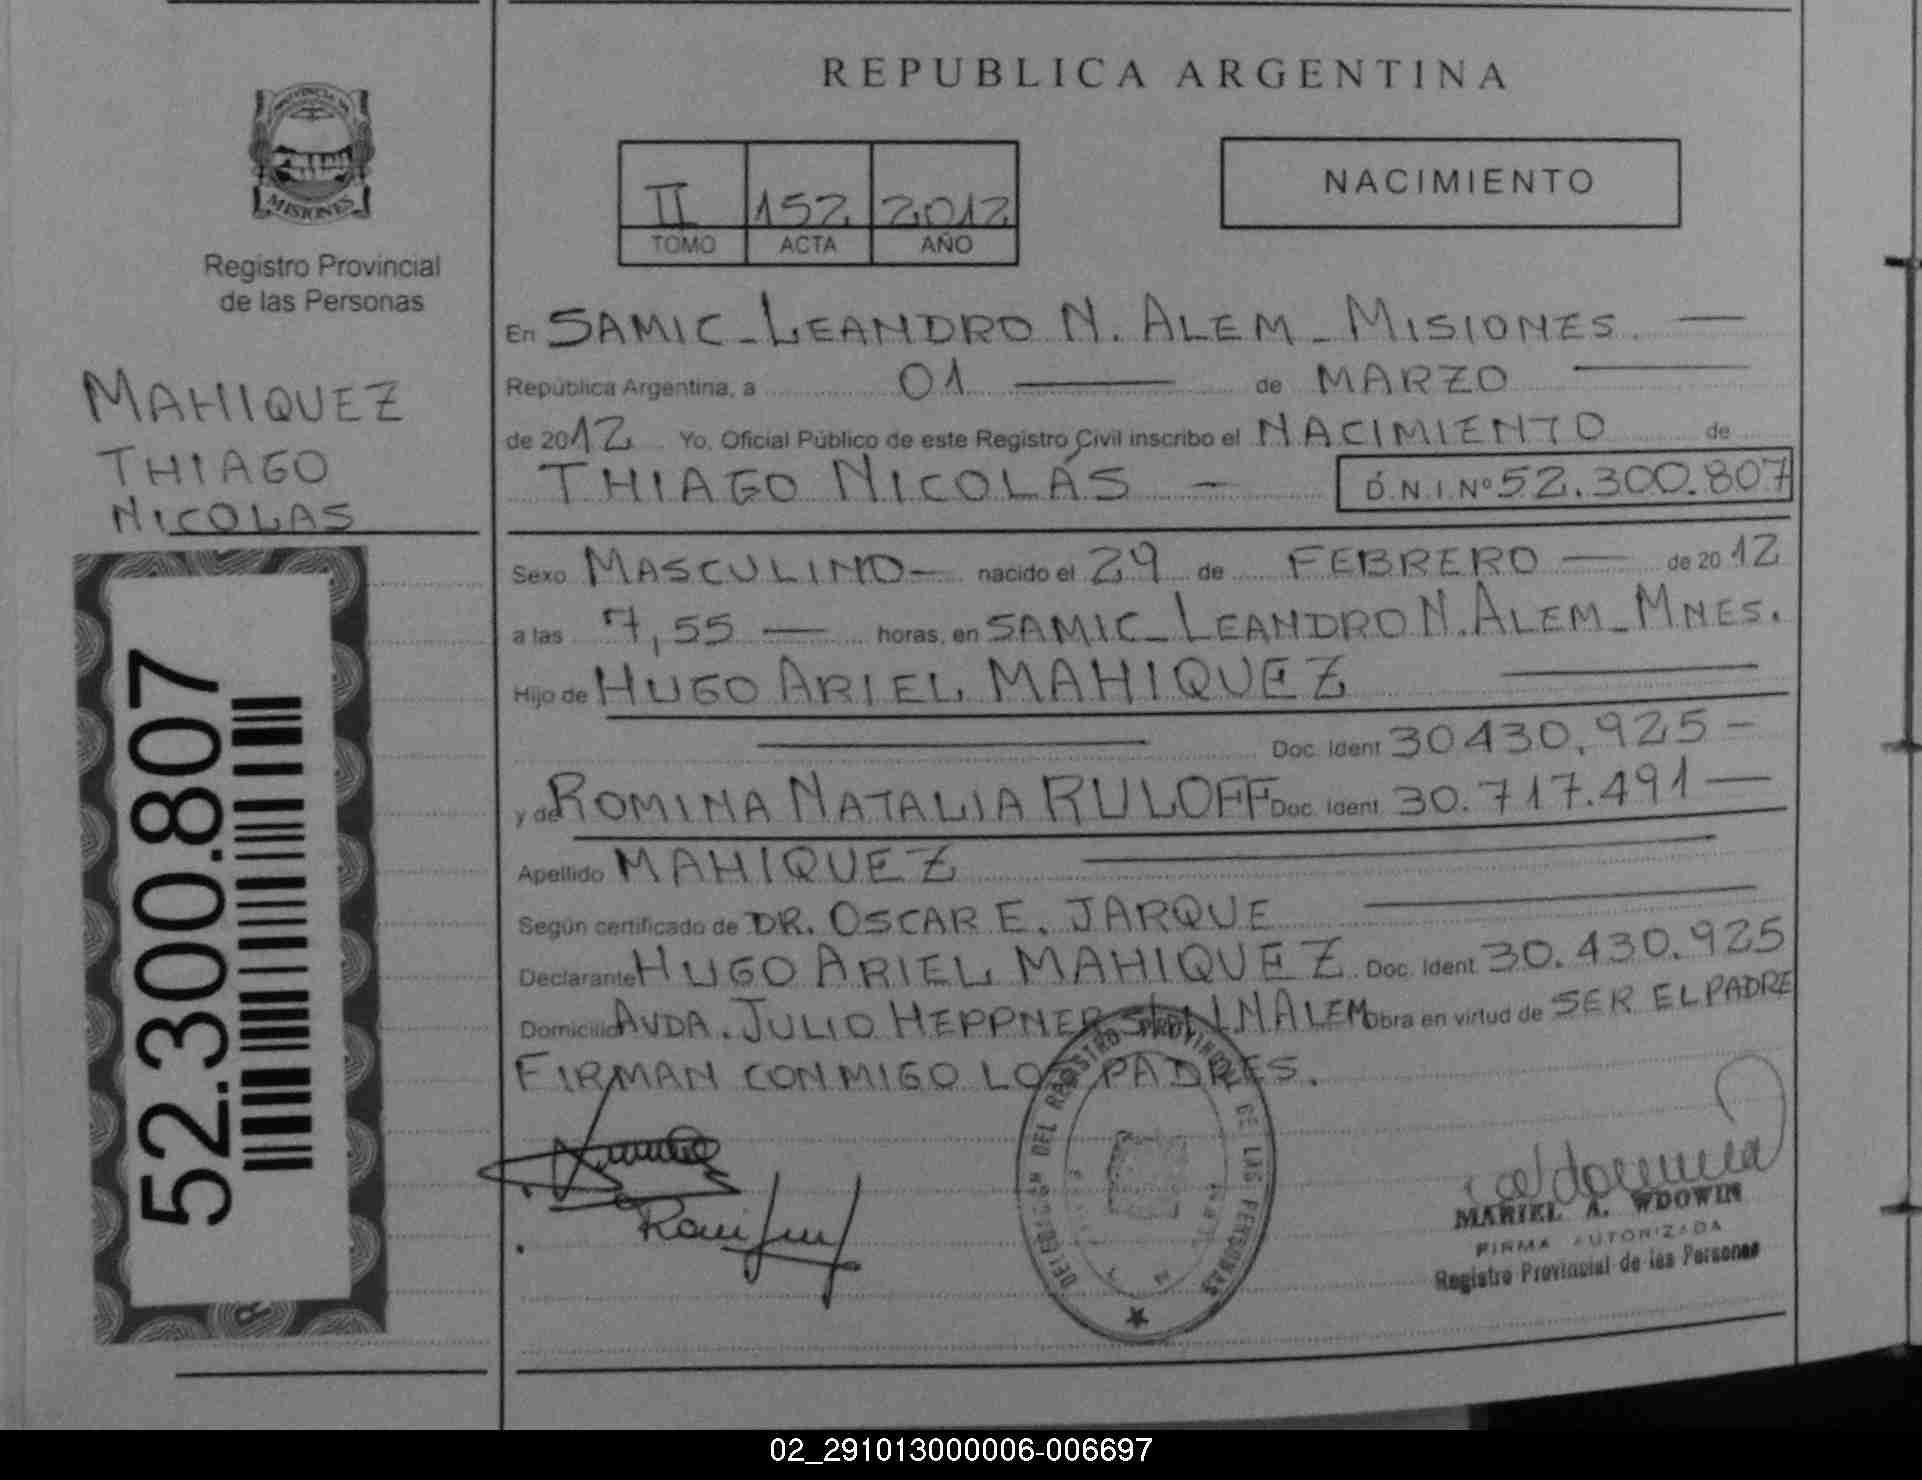 REPUBLICA ARGENTINA
PROVINCIA DE
MISIONES
Registro Provincial
de las Personas
MAHIQUEZ
THIAGO
NICOLAS
52.300.807
II 152 2012
TOMO ACTA AÑO
NACIMIENTO
En SAMIC_LEANDRO N. ALEM_MISIONES.
República Argentina, a 01 de MARZO
de 2012 Yo, Oficial Público de este Registro Civil inscribo el NACIMIENTO de
THIAGO NICOLÁS - D.N.I.Nº 52.300.807
Sexo MASCULINO- nacido el 29 de FEBRERO de 2012
a las 7,55 horas, en SAMIC_LEANDRO N. ALEM_MNES.
Hijo de HUGO ARIEL MAHIQUEZ
Doc. Ident 30430.925-
y de ROMINA NATALIA RULOFF Doc. Ident. 30.717.491
Apellido MAHIQUEZ
Según certificado de DR. OSCAR E. JARQUE
Declarante HUGO ARIEL MAHIQUEZ Doc. Ident. 30.430.925
Domicilio AVDA. JULIO HEPPNER S/N LNALEM Obra en virtud de SER EL PADRE
FIRMAN CONMIGO LOS PADRES.
DEL REGISTRO PROVINCIAL DE LAS PERSONAS
MARIEL A. WDOWIN
FIRMA AUTORIZADA
Registro Provincial de las Personas
02_291013000006-006697